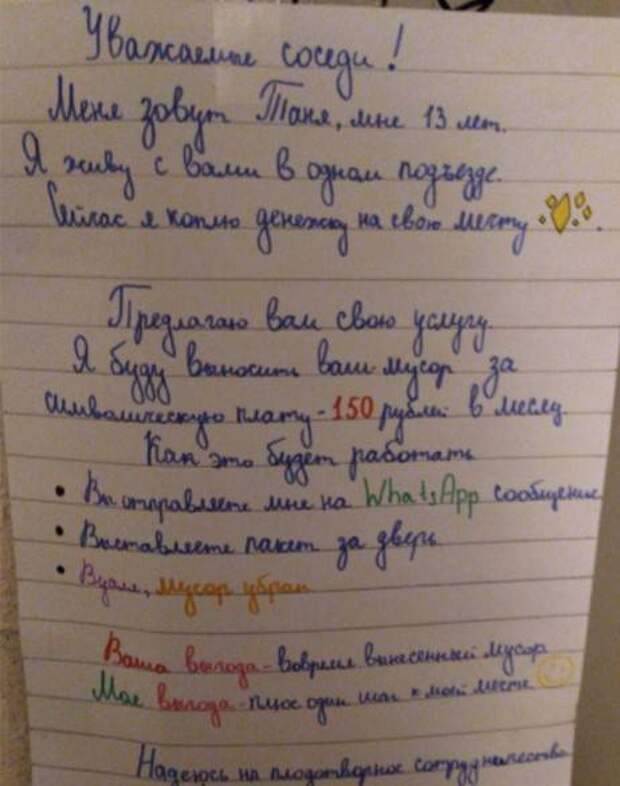 Уважаемые соседи!
Меня зовут Таня, мне 13 лет.
Я живу с вами в одном подъезде.
Сейчас я коплю денежку на свою мечту
Предлагаю вам свою услугу.
Я буду выносить ваш мусор за
символическую плату - 150 рублей в месяц.
Как это будет работать
• Вы отправляете мне на WhatsApp сообщение
• Выставляете пакет за дверь
• Вуаля, мусор убран
Ваша выгода - вовремя вынесенный мусор
Моя выгода - плюс один шаг к моей мечте
Надеюсь на плодотворное сотрудничество